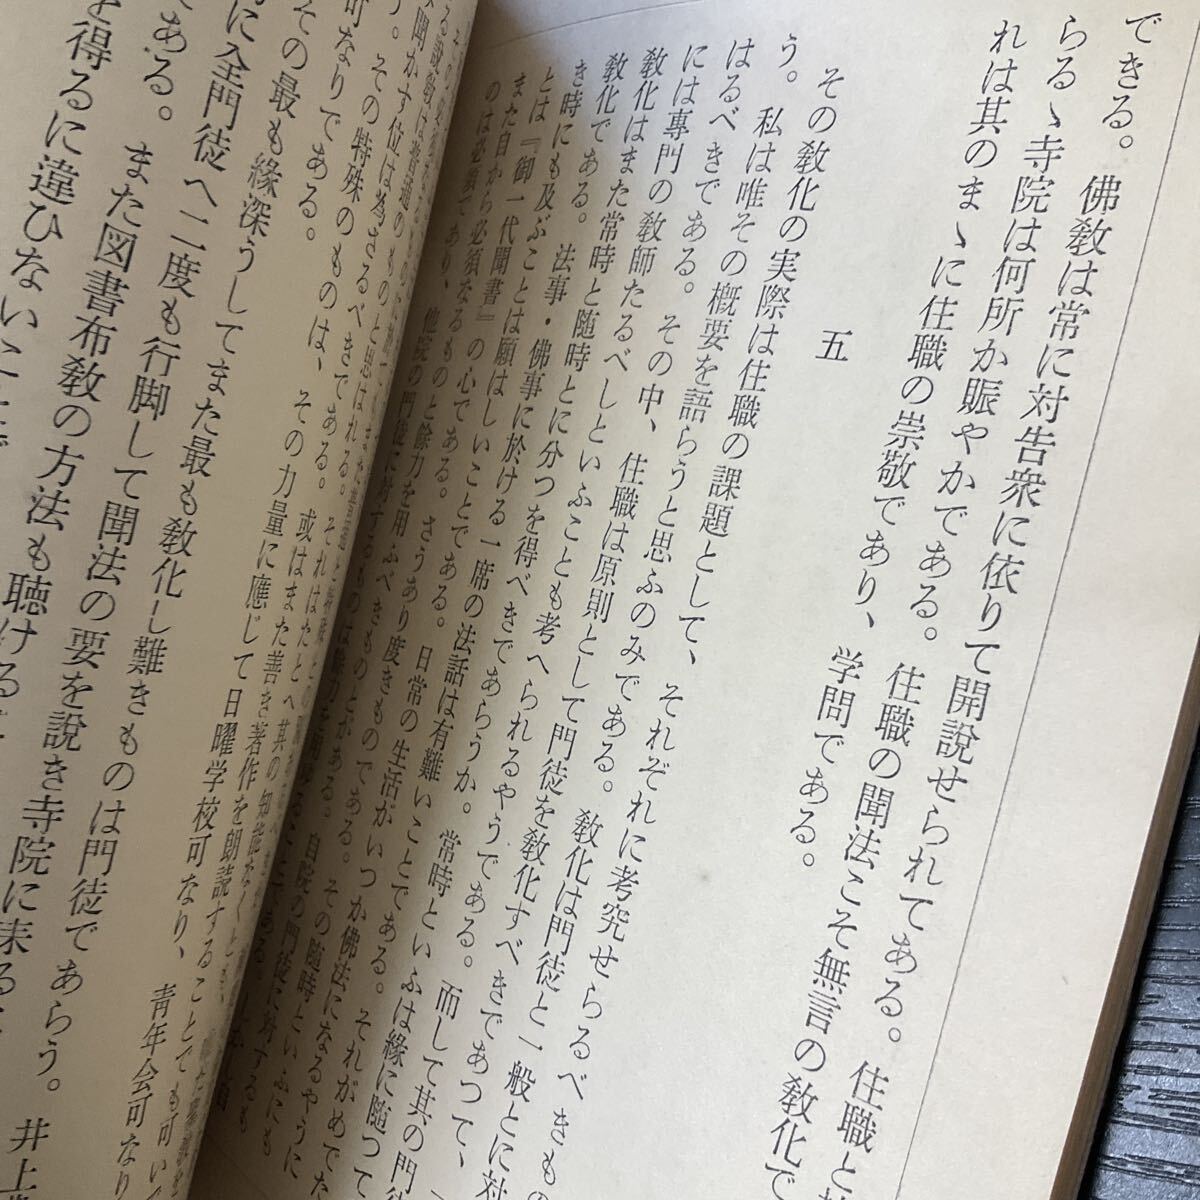 できる。佛教は常に対告衆に依りて開説せられてある。住職と
らるゝ寺院は何所か賑やかである。住職の聞法こそ無言の教化で
れは其のまゝに住職の崇敬であり、学問である。
五
その教化の実際は住職の課題として、それぞれに考究せらるべきもの
う。私は唯その概要を語らうと思ふのみである。教化は門徒と一般とに対
はるべきである。その中、住職は原則として門徒を教化すべきであつて、
には專門の教師たるべしといふことも考へられるやうである。而して其の門
教化はまた常時と随時とに分つを得べきであらうか。常時といふは緣に随つて
教化である。法事・佛事に於ける一席の法話は有難いことである。それがめでた
き時にも及ぶことは願はしいことである。日常の生活がいつか佛法になるやうに
とは『御一代聞書』の心である。さうあり度きものである。その随時といふにも
また自から必須なるものと餘力を用ふべきものとがある。自院の門徒に対するも
のは必須であり、他院の門徒に対するものは餘力を
る說敎は普通のもの
聞かす位は為さるべきである。或はまた善き著作を朗読することでも可い
う。その特殊のものは、その力量に應じて日曜学校可なり、青年会可なり
可なりである。
その最も緣深うしてまた最も教化し難きものは門徒であらう。井上
に全門徒へ二度も行脚して聞法の要を説き寺院に来る
ある。また図書布教の方法も聴ける
を得るに違ひない